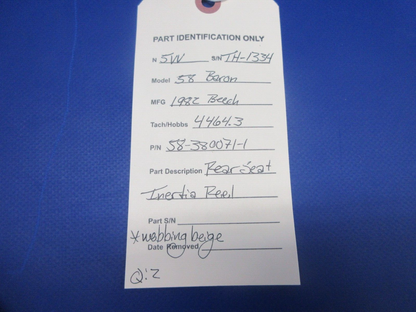 PART IDENTIFICATION ONLY
N 5W S/N TH-1334
Model 58 Baron
MFG 1982 Beech
Tach/Hobbs 4464.3
P/N 58-380071-1
Part Description Rear Seat
Inertia Reel
Part S/N
*webbing beige
Date Removed
Q:2